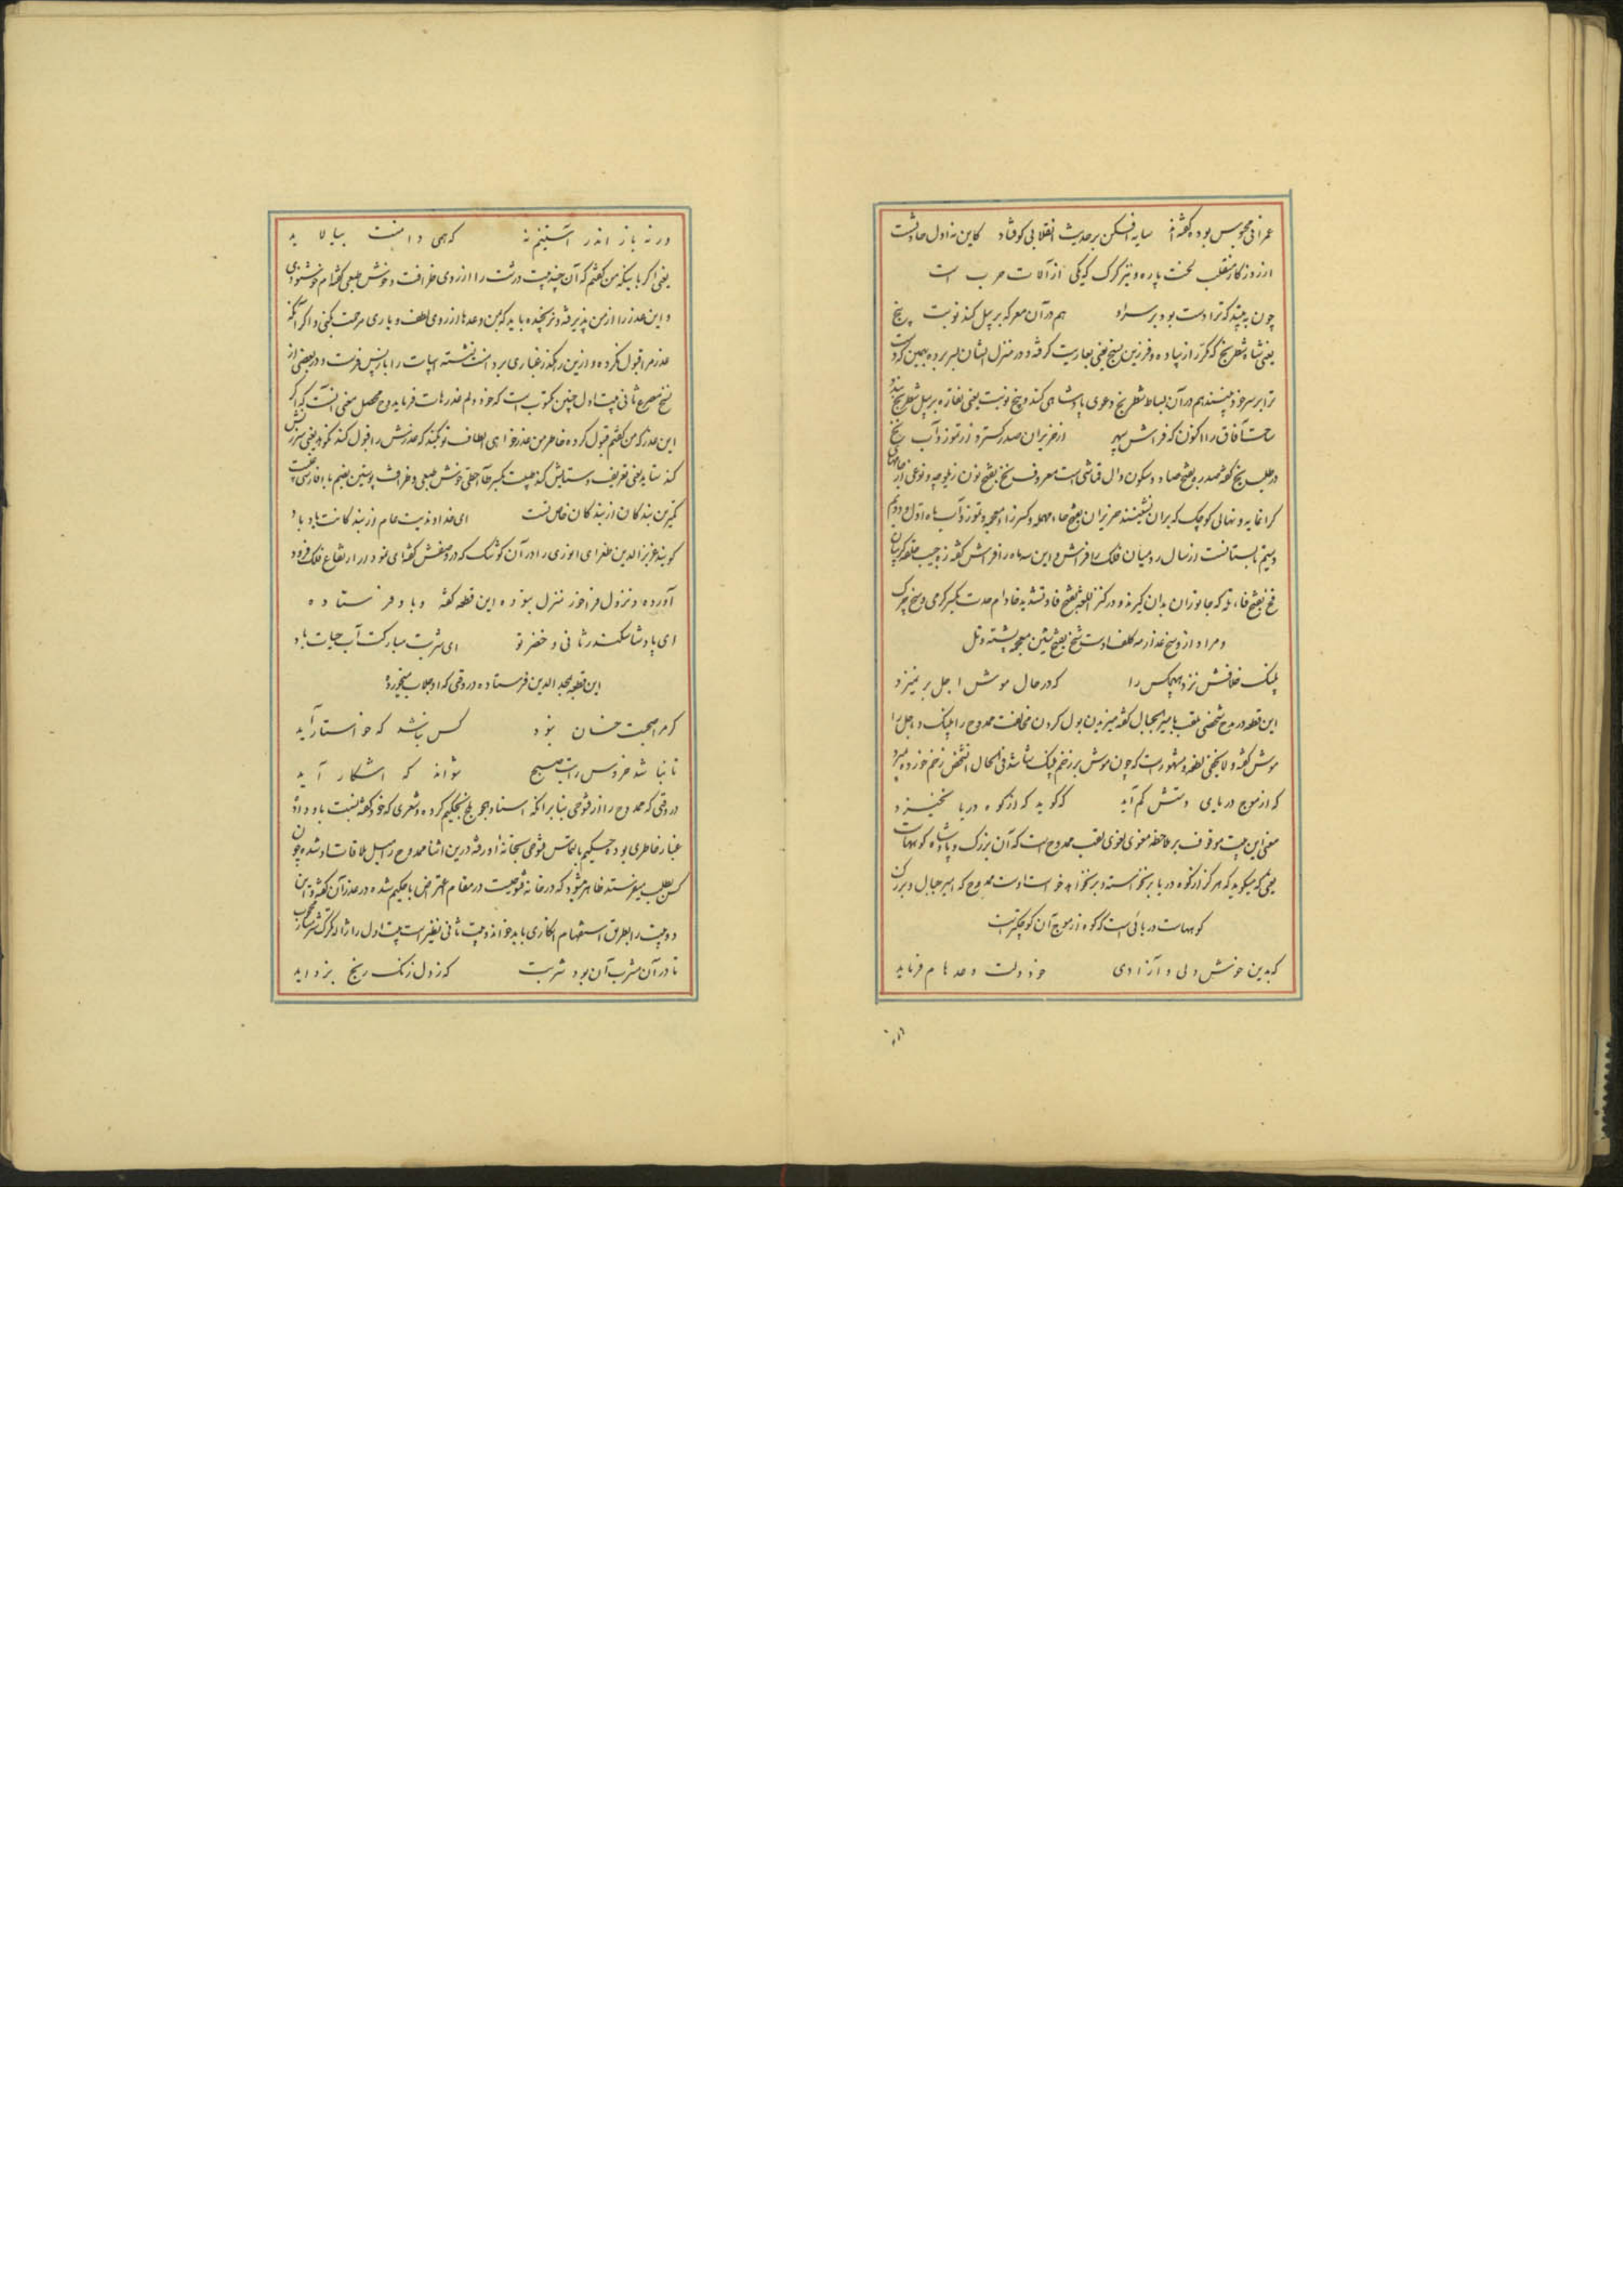 عمرانی محبوس بوده گفته‌اند سایه افکن بر حدیث انقلابی کوفتاد کاین نه اول حادثست
از روزگار منقلب لخت پاره و نیز کرک که یکی از آلات حرب است
چون به بیند که ترا دست بود بر سر او هم در آن معرکه بر پیل کند نوبت پنج
یعنی شاه شطرنج که مکرر از پیاده و فرزین بسیج یعنی بعاریت گرفته و در منزل ایشان بسر برده ببیین که دست
ترا بر سر خود بیند هم در آن بساط شطرنج دعوی پادشاهی کند و پنج نوبت یعنی نقاره بر پیل شطرنج بندد
ساحت آفاق را اکنون که فراش سپهر از حزیران صدر گسترد از تموز و آب نخ
در طلب نخ گفته صدر بفتح صاد و سکون دال قماشی است معروف نخ بفتح نون زیلوچه و نوعی از جامهای
گرانمایه و نهالی کوچک که بران نشینند حزیران بفتح حاء مهمله و کسر زاء معجمه و تموز و آب ماه اول و دویم
و سیم تابستانست از سال رومیان فلک را فراش و این سه ماه را فراش گفته زه جیب حلقه گریبان
فخ بفتح فاء تله که جانوران بدان گیرند و در کنز اللغه بفتح فا و تشدید خا دام حدت بکسر گرمی وسخ چرک
و مراد از وسخ عذار مه کلف اوست شخ بفتح شین معجمه پشته و تل
پلنگ خلافش نزد هیچکس را که در حال موش اجل بر نمیزد
این قطعه در مدح شخصی ملقب بامیر الجبال گفته میزیدن بول کردن مخالفت ممدوح را پلنگ و اجل را
موش گفته و لایخفی لطفه و مشهور است که چون موش بر زخم پلنگ بشاشد فی الحال آنشخص زخم خورده میمیرد
که از موج دریای دستش کم آید که گوید که از کوه دریا نخیزد
معنی این بیت موقوف بر ملاحظه معنوی لغوی لقب ممدوح است که آن بزرگ و پادشاه کوههاست
یعنی که میگوید که هرگز از کوه دریا برنخواسته و برنخواهد خواست اوست ممدوح که امیر جبال و بزرگ
کوههاست دریائی است که کوه از موج آن کوچکتر است
که بدین خوش دلی و آزادی خود دلت وعدهام فرماید
ورنه باز اندر آستینم نه که همی دامنت بیالاید
یعنی اگر باینکه من گفتم که آن چند بیت درشت را از روی ظرافت و خوش طبعی گفته‌ام خوشنودی
و این عذر را از من پذیرفته و نرنجیده باید که من وعدها از روی لطف و یاری مرحمت کنی و اگر آنکه
عذر مرا قبول نکرده و ازین رهگذر غباری بر دامنت نشسته ابیات را باز پس فرست و در بعضی از
نسخ مصرع ثانی بیت اول چنین مکتوب است که خود ولم عذرهات فرماید و محصل معنی آنست که اگر
این عذر که من گفتم قبول کرده خاطر من عذرخواهی الطاف تو بکند که عذرش را قبول کند نکوهد یعنی سرزنش
کند ستاید یعنی تعریف و ستایش کند
کمترین بندگان از بندگان خاص تست ای خداوندیت عام از بندگانت یاد باد
گویند عزیزالدین طغرای انوری را در آن کوشک که در وصفش گفته‌ای نمودار ارتفاع فلک فرود
آورده و نزول فراخور منزل نبوده این قطعه گفته و باو فرستاده
ای پادشا سکندر ثانی و خضر تو ای شربت مبارکت آب حیات باد
این قطعه بمجدالدین فرستاده در وقتی که او جلاب میخورده
کرم از صحبت خسان نبود کس نباشد که خواستار آید
تا نباشد خروس راتب صبح نتواند که آشکار آید
در وقتی که ممدوح را از فتوحی بنا بر آنکه اسناد هجو بلخ بحکیم کرده و شعری که خود گفته نسبت باو داده
غبار خاطری بوده حکیم بالتماس فتوحی بخانه او رفته درین اثنا ممدوح را میل ملاقات او شده چون
کس بطلب میفرستد ظاهر میشود که در خانه فتوحیست در مقام اعتراض با حکیم شده در عذر آن گفته و این
دو بیت را بطریق استفهام انکاری باید خواند و بیت ثانی نظیر است بیت اول را
تا در آن مشرب آن بود شربت که ز دل زنگ رنج بزداید